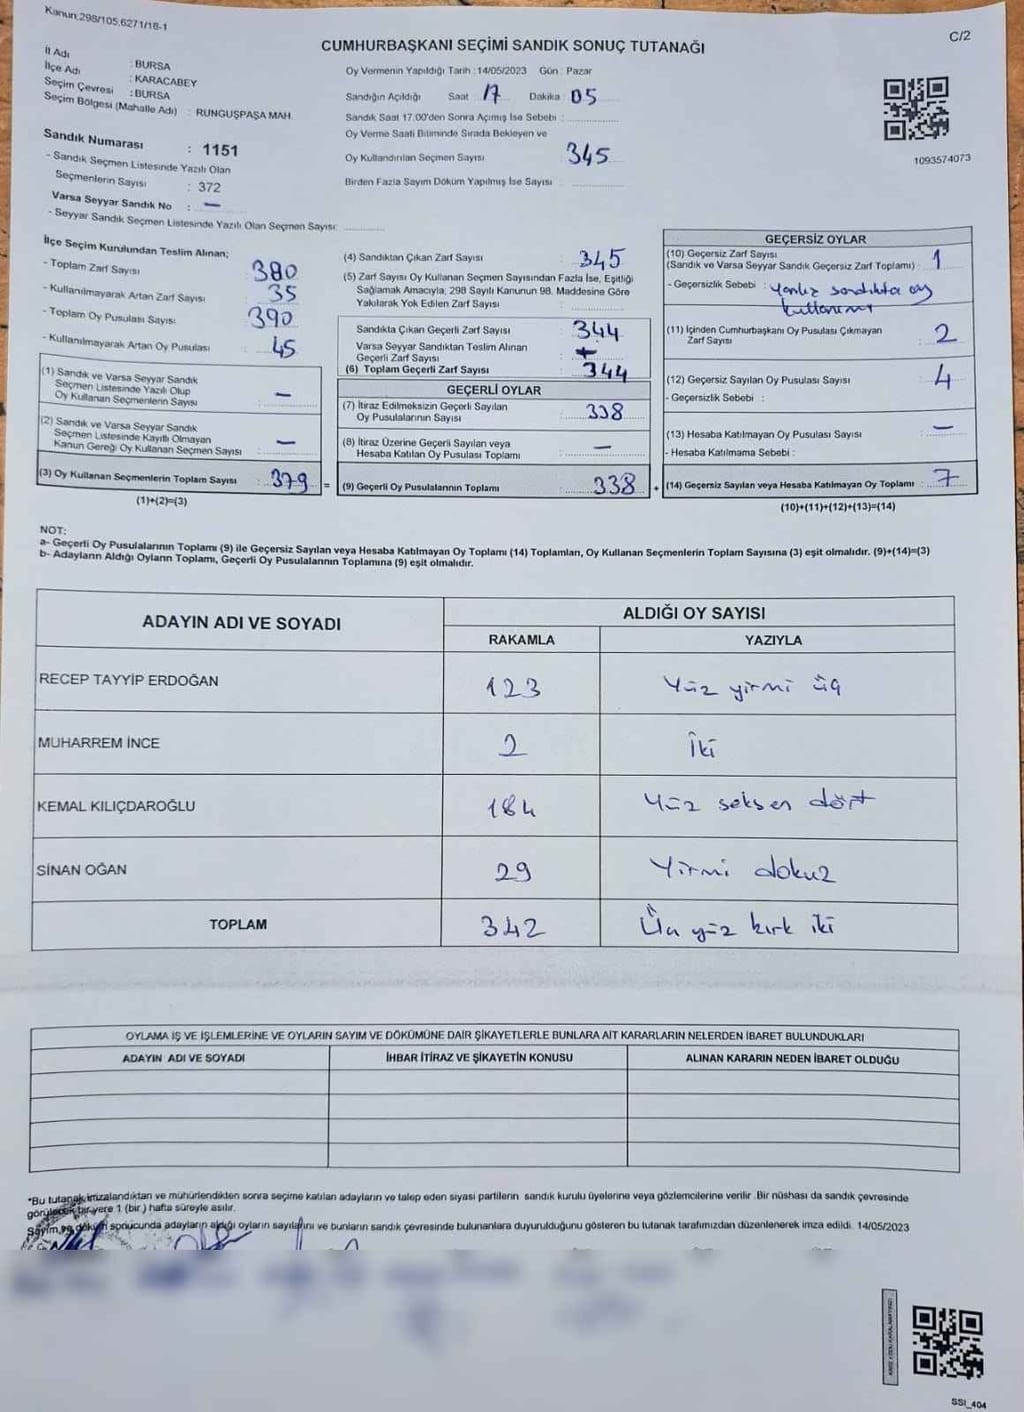 Kanun:298/105,6271/18-1
C/2
CUMHURBAŞKANI SEÇİMİ SANDIK SONUÇ TUTANAĞI
İl Adı : BURSA
İlçe Adı : KARACABEY
Seçim Çevresi : BURSA
Seçim Bölgesi (Mahalle Adı) : RUNGUŞPAŞA MAH.
Oy Vermenin Yapıldığı Tarih :14/05/2023 Gün : Pazar
Sandığın Açıldığı Saat 17 Dakika : 05
Sandık Saat 17.00'den Sonra Açımış İse Sebebi :
Oy Verme Saati Bitiminde Sırada Bekleyen ve
Oy Kullandırılan Seçmen Sayısı 345
Birden Fazla Sayım Döküm Yapılmış İse Sayısı :
1093574073
Sandık Numarası : 1151
- Sandık Seçmen Listesinde Yazılı Olan
Seçmenlerin Sayısı : 372
Varsa Seyyar Sandık No : —
- Seyyar Sandık Seçmen Listesinde Yazılı Olan Seçmen Sayısı:
İlçe Seçim Kurulundan Teslim Alınan;
- Toplam Zarf Sayısı : 380
- Kullanılmayarak Artan Zarf Sayısı : 35
- Toplam Oy Pusulası Sayısı : 390
- Kullanılmayarak Artan Oy Pusulası : 45
(1) Sandık ve Varsa Seyyar Sandık
Seçmen Listesinde Yazılı Olup
Oy Kullanan Seçmenlerin Sayısı : —
(2) Sandık ve Varsa Seyyar Sandık
Seçmen Listesinde Kayıtlı Olmayan
Kanun Gereği Oy Kullanan Seçmen Sayısı : —
(3) Oy Kullanan Seçmenlerin Toplam Sayısı : 379 =
(1)+(2)=(3)
(4) Sandıktan Çıkan Zarf Sayısı : 345
(5) Zarf Sayısı Oy Kullanan Seçmen Sayısından Fazla İse, Eşitliği
Sağlamak Amacıyla, 298 Sayılı Kanunun 98. Maddesine Göre
Yakılarak Yok Edilen Zarf Sayısı :
Sandıkta Çıkan Geçerli Zarf Sayısı : 344
Varsa Seyyar Sandıktan Teslim Alınan
Geçerli Zarf Sayısı : +
(6) Toplam Geçerli Zarf Sayısı : 344
GEÇERLİ OYLAR
(7) İtiraz Edilmeksizin Geçerli Sayılan
Oy Pusulalarının Sayısı : 338
(8) İtiraz Üzerine Geçerli Sayılan veya
Hesaba Katılan Oy Pusulası Toplamı : —
(9) Geçerli Oy Pusulalarının Toplamı : 338 +
GEÇERSİZ OYLAR
(10) Geçersiz Zarf Sayısı
(Sandık ve Varsa Seyyar Sandık Geçersiz Zarf Toplamı) : 1
- Geçersizlik Sebebi : yanlız sandıkta oy
kullanımı
(11) İçinden Cumhurbaşkanı Oy Pusulası Çıkmayan
Zarf Sayısı : 2
(12) Geçersiz Sayılan Oy Pusulası Sayısı : 4
- Geçersizlik Sebebi :
(13) Hesaba Katılmayan Oy Pusulası Sayısı : —
- Hesaba Katılmama Sebebi :
(14) Geçersiz Sayılan veya Hesaba Katılmayan Oy Toplamı : 7
(10)+(11)+(12)+(13)=(14)
NOT:
a- Geçerli Oy Pusulalarının Toplamı (9) ile Geçersiz Sayılan veya Hesaba Katılmayan Oy Toplamı (14) Toplamları, Oy Kullanan Seçmenlerin Toplam Sayısına (3) eşit olmalıdır. (9)+(14)=(3)
b- Adayların Aldığı Oyların Toplamı, Geçerli Oy Pusulalarının Toplamına (9) eşit olmalıdır.
ADAYIN ADI VE SOYADI ALDIĞI OY SAYISI
RAKAMLA YAZIYLA
RECEP TAYYİP ERDOĞAN 123 Yüz yirmi üç
MUHARREM İNCE 2 İki
KEMAL KILIÇDAROĞLU 184 Yüz seksen dört
SİNAN OĞAN 29 Yirmi dokuz
TOPLAM 342 Üç yüz kırk iki
OYLAMA İŞ VE İŞLEMLERİNE VE OYLARIN SAYIM VE DÖKÜMÜNE DAİR ŞİKAYETLERLE BUNLARA AİT KARARLARIN NELERDEN İBARET BULUNDUKLARI
ADAYIN ADI VE SOYADI İHBAR İTİRAZ VE ŞİKAYETİN KONUSU ALINAN KARARIN NEDEN İBARET OLDUĞU
*Bu tutanak imzalandıktan ve mühürlendikten sonra seçime katılan adayların ve talep eden siyasi partilerin sandık kurulu üyelerine veya gözlemcilerine verilir. Bir nüshası da sandık çevresinde
görülecek bir yere 1 (bir) hafta süreyle asılır.
Sayım ve döküm sonucunda adayların aldığı oyların sayılarını ve bunların sandık çevresinde bulunanlara duyurulduğunu gösteren bu tutanak tarafımızdan düzenlenerek imza edildi. 14/05/2023
SSI_404